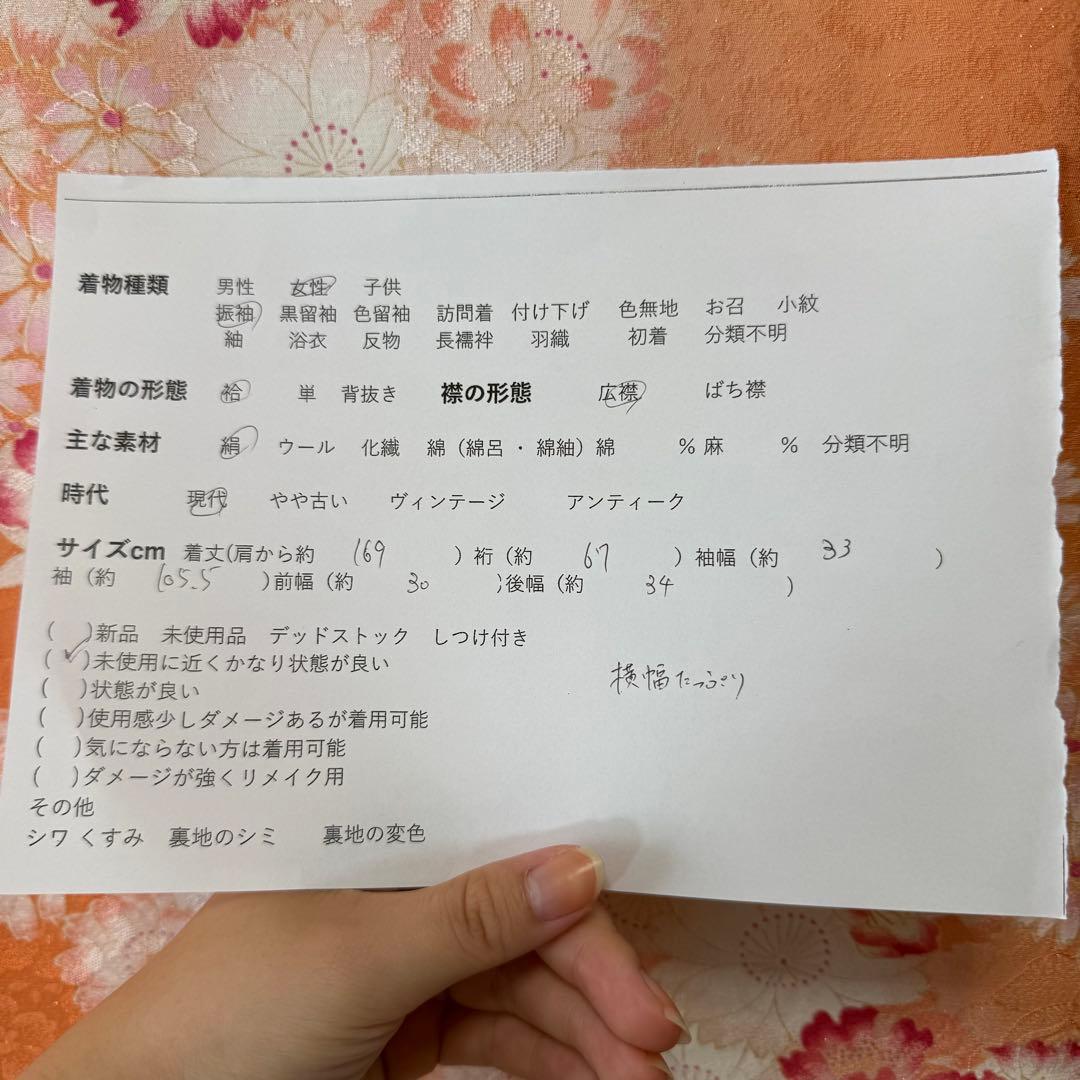 着物種類 男性 女性 子供
振袖 黒留袖 色留袖 訪問着 付け下げ 色無地 お召 小紋
紬 浴衣 反物 長襦袢 羽織 初着 分類不明
着物の形態 袷 単 背抜き 襟の形態 広襟 ばち襟
主な素材 絹 ウール 化繊 綿（綿呂・綿紬）綿 % 麻 % 分類不明
時代 現代 やや古い ヴィンテージ アンティーク
サイズcm 着丈(肩から約 169 ) 裄（約 67 ）袖幅（約 33 ）
袖（約 105.5 )前幅（約 30 )後幅（約 34 ）
( )新品 未使用品 デッドストック しつけ付き
( ✓ )未使用に近くかなり状態が良い
( )状態が良い
( )使用感少しダメージあるが着用可能
( )気にならない方は着用可能
( )ダメージが強くリメイク用
横幅たっぷり
その他
シワ くすみ 裏地のシミ 裏地の変色